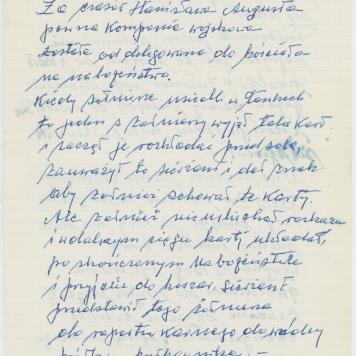 Za czasów Stanisława Augusta
pewna Kompania wojskowa
została oddelegowana do Kościoła
na nabożeństwo.
Kiedy żołnierze usiedli w ławkach
to jeden z żołnierzy wyjął talię kart
i zaczął je rozkładać przed sobą,
zauważył to sierżant i dał znak
aby żołnierz schował te Karty.
Ale żołnierz nie usłuchał rozkazu
i w dalszym ciągu karty układał,
po skończonym nabożeństwie
i przyjściu do koszar, sierżant
przedstawił tego żołnierza
do raportu karnego dowódcy
pułku